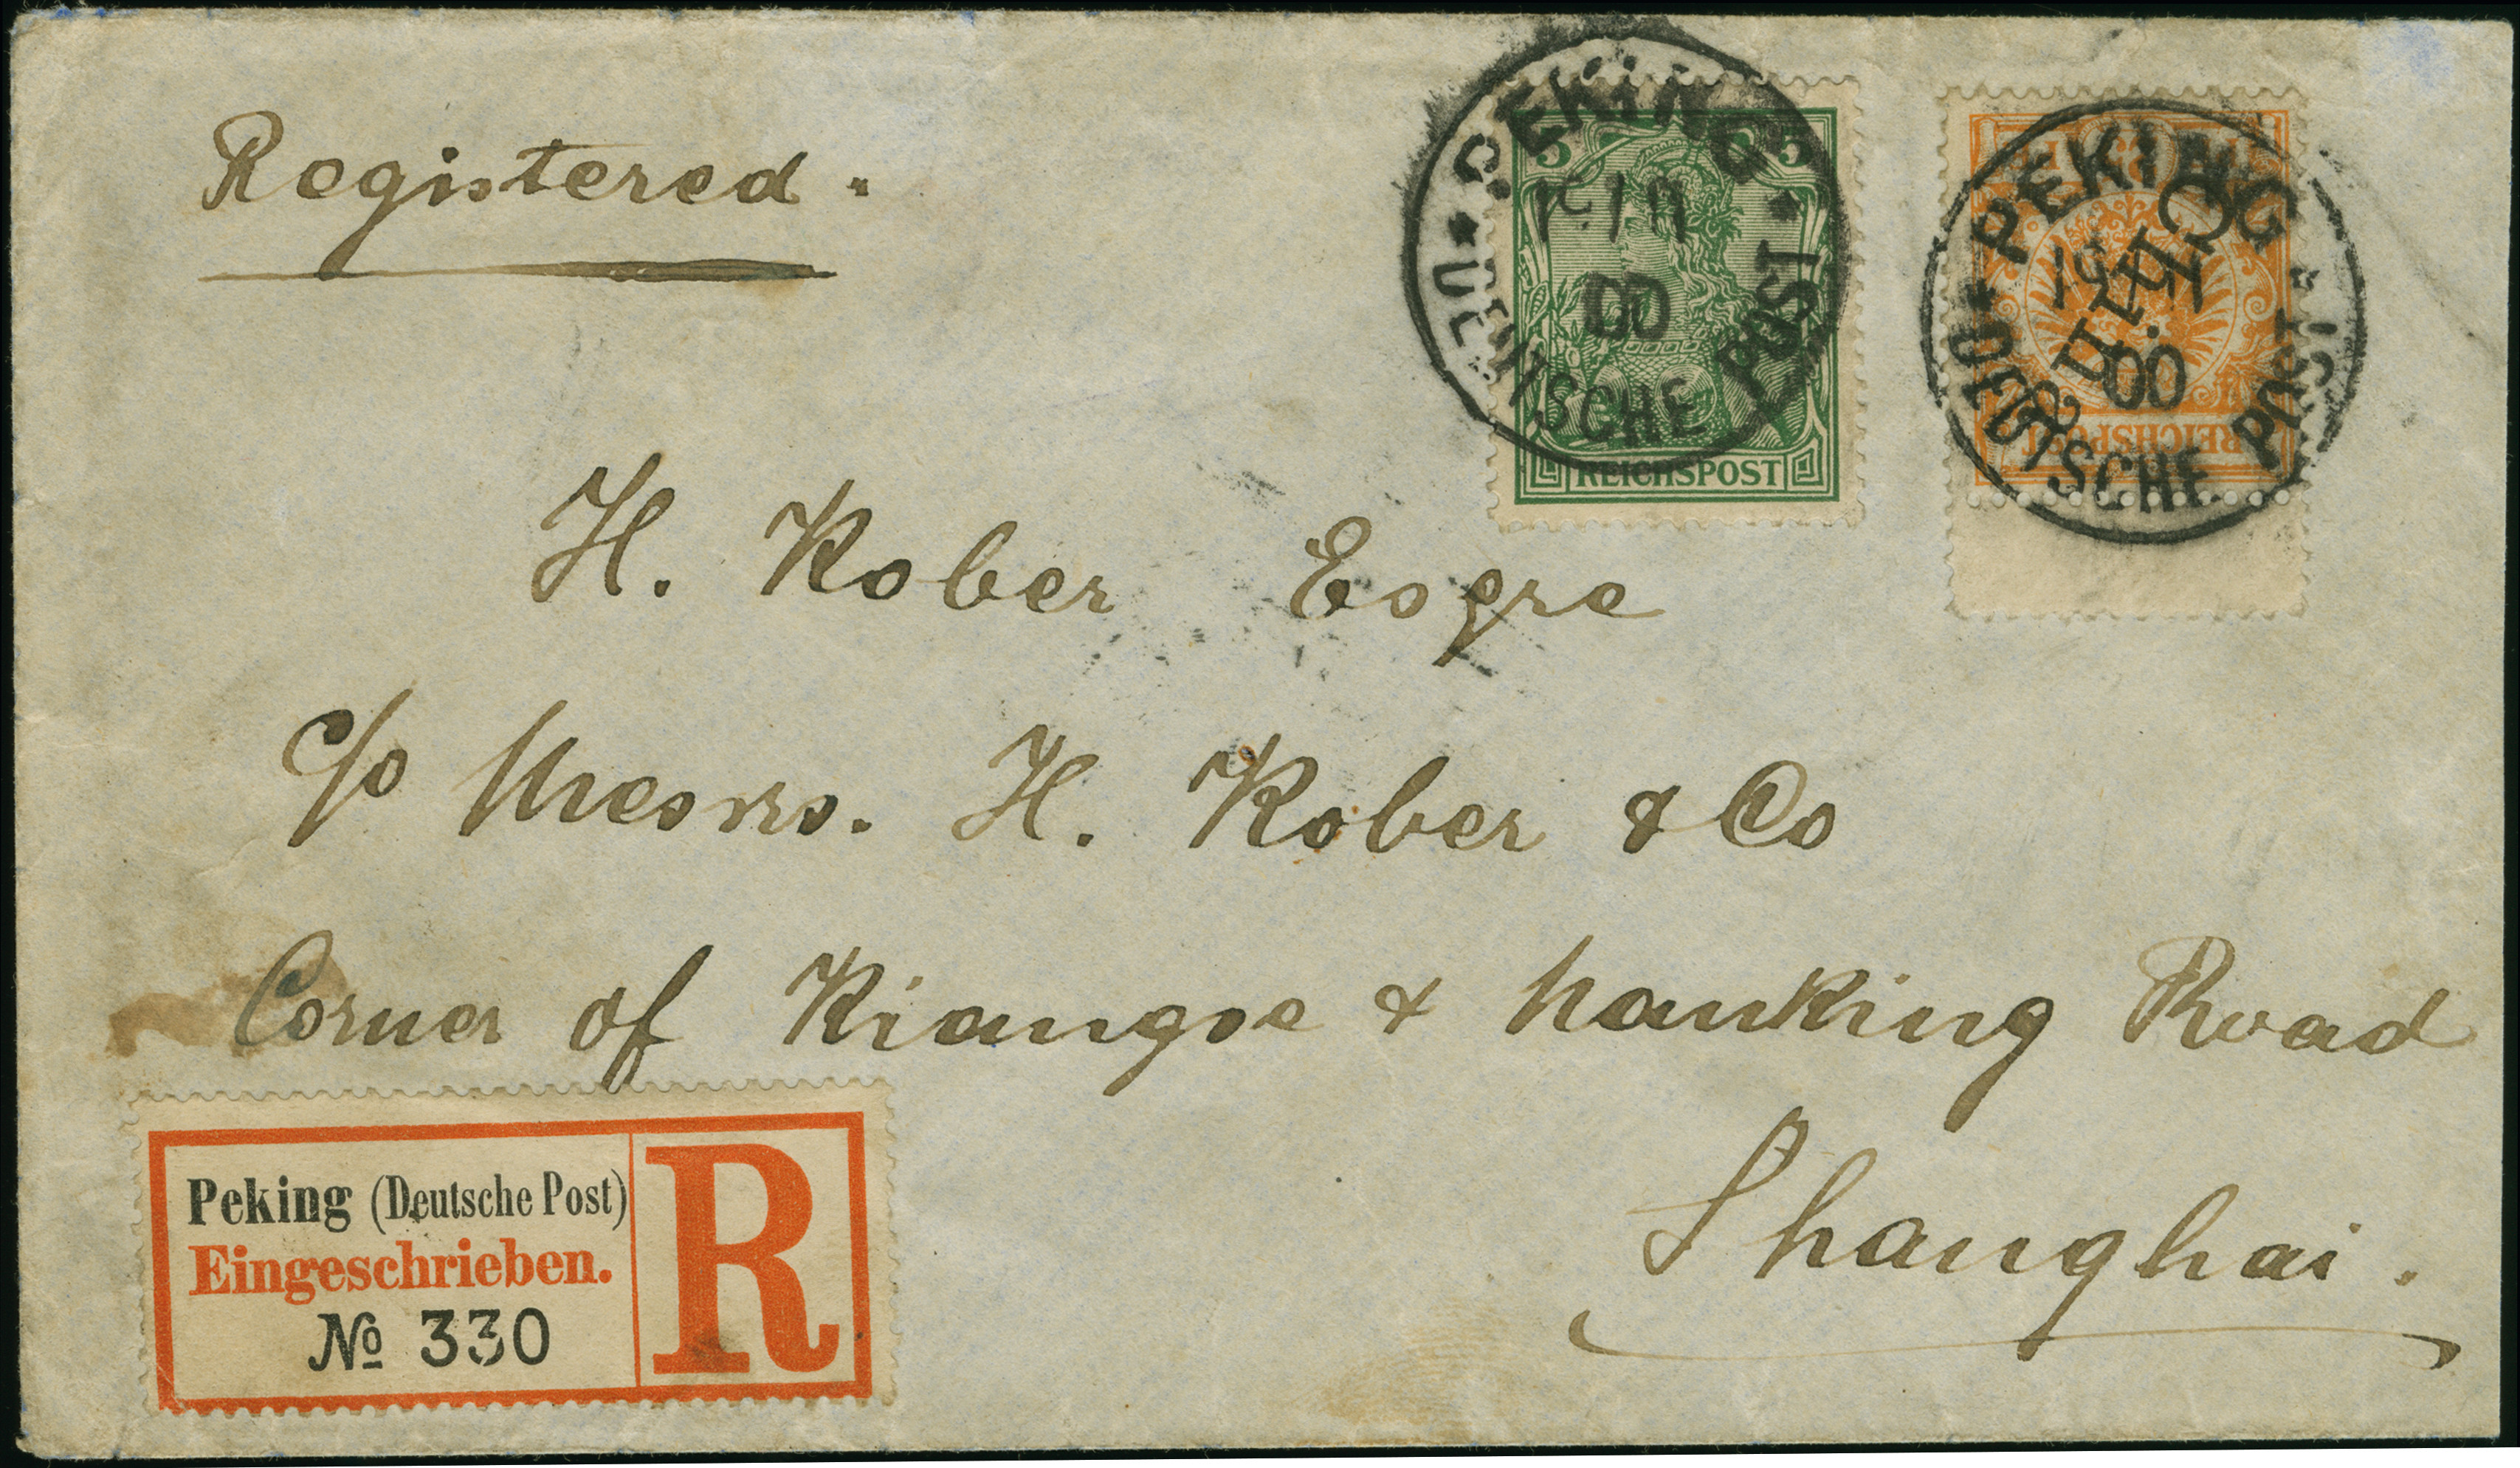 Registered.
PEKING
DEUTSCHE POST
00
5 5
REICHSPOST
PEKING
DEUTSCHE POST
00
China
REICHSPOST
H. Kober Esqre
c/o Messrs. H. Kober & Co
Corner of Kiangse & Nanking Road
Shanghai.
Peking (Deutsche Post)
Eingeschrieben.
No 330
R